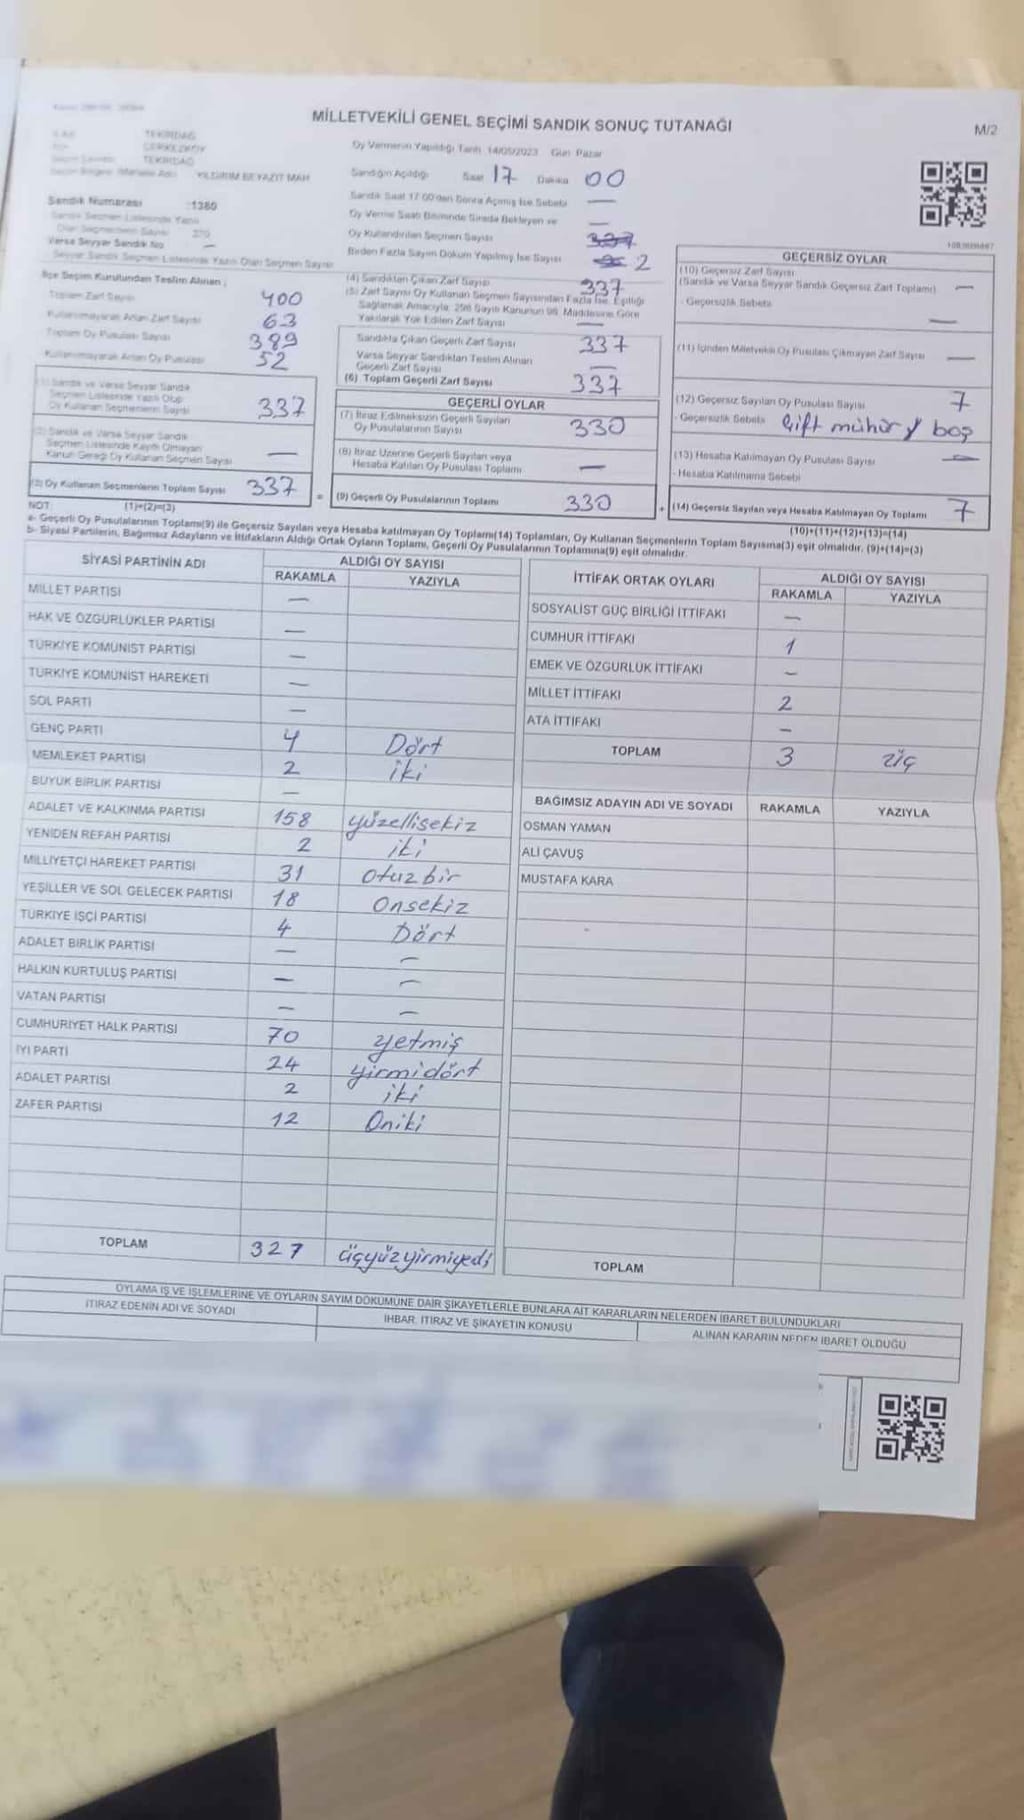 MİLLETVEKİLİ GENEL SEÇİMİ SANDIK SONUÇ TUTANAĞI
M/2
TEKİRDAĞ
ÇERKEZKÖY
TEKİRDAĞ
YILDIRIM BEYAZIT MAH
Oy Vermenin Yapıldığı Tarih 14/05/2023 Gün Pazar
Sandığın Açıldığı Saat 17 Dakika 00
Sandık Numarası :1380
Sandık Saat 17:00'den Sonra Açılmış İse Sebebi —
Oy Verme Saati Bitiminde Sırada Bekleyen ve
Oy Kullandırılan Seçmen Sayısı —
Varsa Seyyar Sandık No —
Seyyar Sandık Seçmen Listesinde Yazılı Olan Seçmen Sayısı
Birden Fazla Sayım Döküm Yapılmış İse Sayısı 2
İlçe Seçim Kurulundan Teslim Alınan ;
Toplam Zarf Sayısı 400
Kullanılmayarak Artan Zarf Sayısı 63
Toplam Oy Pusulası Sayısı 389
Kullanılmayarak Artan Oy Pusulası 52
(1) Sandık ve Varsa Seyyar Sandık
Seçmen Listesinde Yazılı Olup
Oy Kullanan Seçmenlerin Sayısı 337
(2) Sandık ve Varsa Seyyar Sandık
Seçmen Listesinde Kayıtlı Olmayan
Kanun Gereği Oy Kullanan Seçmen Sayısı —
(3) Oy Kullanan Seçmenlerin Toplam Sayısı 337
(4) Sandıktan Çıkan Zarf Sayısı 337
(5) Zarf Sayısı Oy Kullanan Seçmen Sayısından Fazla İse, Eşitliği
Sağlamak Amacıyla, 298 Sayılı Kanunun 98. Maddesine Göre
Yakılarak Yok Edilen Zarf Sayısı —
Sandıkta Çıkan Geçerli Zarf Sayısı 337
Varsa Seyyar Sandıktan Teslim Alınan
Geçerli Zarf Sayısı —
(6) Toplam Geçerli Zarf Sayısı 337
GEÇERLİ OYLAR
(7) İtiraz Edilmeksizin Geçerli Sayılan
Oy Pusulalarının Sayısı 330
(8) İtiraz Üzerine Geçerli Sayılan veya
Hesaba Katılan Oy Pusulası Toplamı —
= (9) Geçerli Oy Pusulalarının Toplamı 330
GEÇERSİZ OYLAR
(10) Geçersiz Zarf Sayısı
(Sandık ve Varsa Seyyar Sandık Geçersiz Zarf Toplamı) —
- Geçersizlik Sebebi —
(11) İçinden Milletvekili Oy Pusulası Çıkmayan Zarf Sayısı —
(12) Geçersiz Sayılan Oy Pusulası Sayısı 7
- Geçersizlik Sebebi Çift mühür / boş
(13) Hesaba Katılmayan Oy Pusulası Sayısı —
- Hesaba Katılmama Sebebi
+ (14) Geçersiz Sayılan veya Hesaba Katılmayan Oy Toplamı 7
NOT: (1)+(2)=(3)
(10)+(11)+(12)+(13)=(14)
a- Geçerli Oy Pusulalarının Toplamı(9) ile Geçersiz Sayılan veya Hesaba katılmayan Oy Toplamı(14) Toplamları, Oy Kullanan Seçmenlerin Toplam Sayısına(3) eşit olmalıdır. (9)+(14)=(3)
b- Siyasi Partilerin, Bağımsız Adayların ve İttifakların Aldığı Ortak Oyların Toplamı, Geçerli Oy Pusulalarının Toplamına(9) eşit olmalıdır.
SİYASİ PARTİNİN ADI ALDIĞI OY SAYISI
RAKAMLA YAZIYLA
MİLLET PARTİSİ —
HAK VE ÖZGÜRLÜKLER PARTİSİ —
TÜRKİYE KOMÜNİST PARTİSİ —
TÜRKİYE KOMÜNİST HAREKETİ —
SOL PARTİ —
GENÇ PARTİ 4 Dört
MEMLEKET PARTİSİ 2 iki
BÜYÜK BİRLİK PARTİSİ —
ADALET VE KALKINMA PARTİSİ 158 yüzellisekiz
YENİDEN REFAH PARTİSİ 2 iki
MİLLİYETÇİ HAREKET PARTİSİ 31 otuzbir
YEŞİLLER VE SOL GELECEK PARTİSİ 18 onsekiz
TÜRKİYE İŞÇİ PARTİSİ 4 Dört
ADALET BİRLİK PARTİSİ — —
HALKIN KURTULUŞ PARTİSİ — —
VATAN PARTİSİ — —
CUMHURİYET HALK PARTİSİ 70 yetmiş
İYİ PARTİ 24 yirmidört
ADALET PARTİSİ 2 iki
ZAFER PARTİSİ 12 Oniki
TOPLAM 327 üçyüzyirmiyedi
İTTİFAK ORTAK OYLARI ALDIĞI OY SAYISI
RAKAMLA YAZIYLA
SOSYALİST GÜÇ BİRLİĞİ İTTİFAKI —
CUMHUR İTTİFAKI 1
EMEK VE ÖZGÜRLÜK İTTİFAKI —
MİLLET İTTİFAKI 2
ATA İTTİFAKI —
TOPLAM 3 üç
BAĞIMSIZ ADAYIN ADI VE SOYADI RAKAMLA YAZIYLA
OSMAN YAMAN
ALİ ÇAVUŞ
MUSTAFA KARA
TOPLAM
OYLAMA İŞ VE İŞLEMLERİNE VE OYLARIN SAYIM DÖKÜMÜNE DAİR ŞİKAYETLERLE BUNLARA AİT KARARLARIN NELERDEN İBARET BULUNDUKLARI
İTİRAZ EDENİN ADI VE SOYADI İHBAR, İTİRAZ VE ŞİKAYETİN KONUSU ALINAN KARARIN NEDEN İBARET OLDUĞU